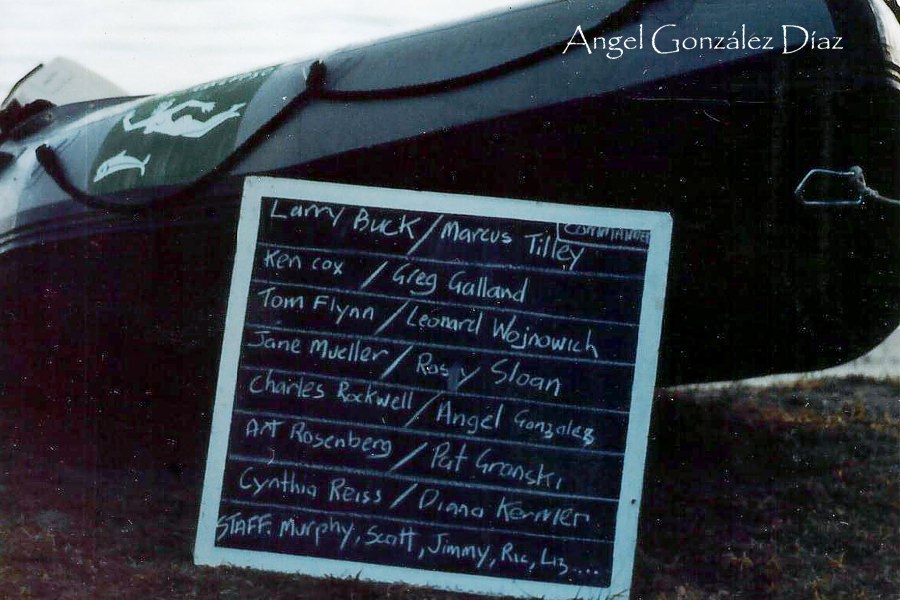 Angel González Díaz
COMMANDER
Larry Buck / Marcus Tilley
Ken Cox / Greg Galland
Tom Flynn / Leonard Wojnowich
Jane Mueller / Rosy Sloan
Charles Rockwell / Angel Gonzalez
Art Rosenberg / Pat Granski
Cynthia Reiss / Diana Kermer
STAFF: Murphy, Scott, Jimmy, Ric, Liz....